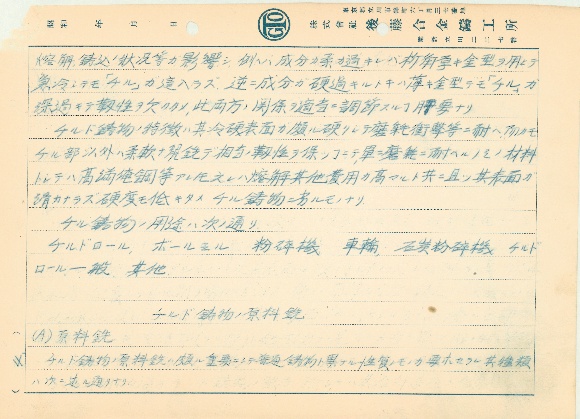 昭和　年　月　日
株式會社 後藤合金鑄工所
熔解鋳込ノ状況等カ影響シ 例ヘハ成分カ柔カ過キレハ 金型ヲ用ヒテ
急冷シテモ「チル」カ這入ラズ 逆ニ成分カ硬過キルトキハ薄キ金型テモ「チル」カ
深過キテ靱性ヲ欠クノテ此両方ノ関係ヲ適当ニ調節スルコト肝要ナリ
チルド鋳物ノ特徴ハ其冷硬表面カ頗ル硬クシテ磨耗衝撃等ニ耐ヘ 而カモ
チル部以外ハ柔軟ナ 銑デ相当ノ靱性ヲ保ツコトニテ單ニ磨耗ニ耐ヘルノミノ材料
トシテハ高満俺鋼等アルモ之レハ熔解其他費用カ高マルト共ニ且ツ其表面カ
硬度モ低キタメ チル鋳物ニ劣ルモノナリ
チル鋳物ノ用途ハ次ノ通リ
チルドロール、ボールミル　粉砕機　車輪、石炭粉砕機 チルド
ロール一般 其他
チルド鋳物ノ原料銑
(A) 原料銑
チルド鋳物ノ原料銑ハ頗ル重要ニシテ普通鋳物ト異ナル性質ノモノカ要求セラル 其種類
ハ次ニ述ル通リナリ